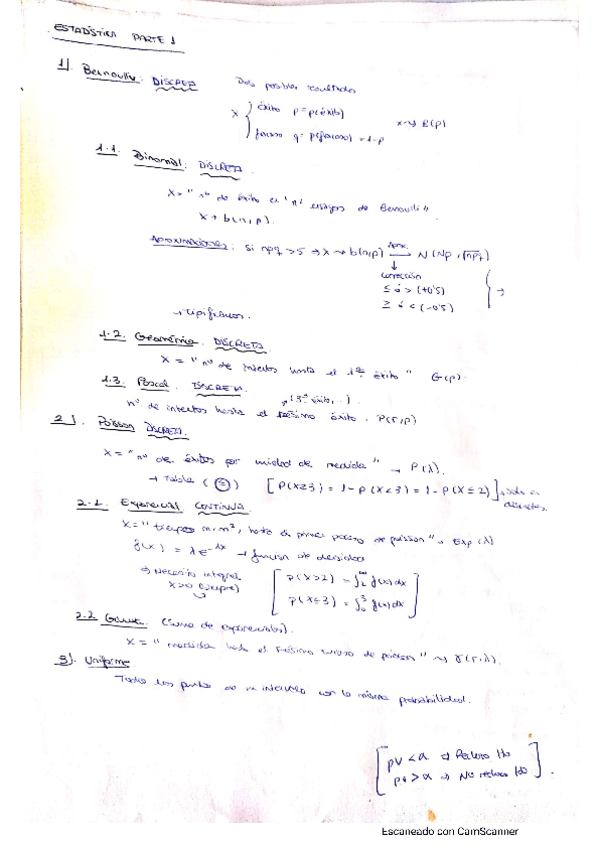 ESTADÍSTICA PARTE 1
1). Bernoulli: DISCRETA Dos posibles resultados
X { éxito p=p(éxito)
fracaso q=p(fracaso)=1-p x→B(p)
1.1. Binomial: DISCRETA.
X="nº de éxito en 'n' ensayos de Bernoulli"
X→b(n,p).
Aproximaciones: si npq>5 → x→b(n,p) Aprox. → N(Np, √npq)
↓
corrección
≤ ó > (+0,5)
≥ ó < (-0,5)
→ tipificamos.
1.2. Geométrica. DISCRETA
X = "nº de intentos hasta el 1er éxito" G(p).
1.3. Pascal. DISCRETA.
nº de intentos hasta el résimo éxito. P(r,p)
2). Poisson DISCRETA.
X="nº de éxitos por unidad de medida" → P(λ).
→ Tabla [P(X≥3)=1-P(X<3)=1-P(X≤2)] solo en discretas.
2.1. Exponencial CONTINUA.
X=" hasta el primer de poisson" → Exp(λ)
f(x) = λe^-λx → función de densidad
⇒ Necesito integral
x>0 siempre)
[ P(X>2) = ∫₂^∞ f(x)dx
P(X≤3) = ∫₀^3 f(x)dx ]
2.2 Gamma. (suma de exponenciales).
X = " medida hasta el résimo suceso de poisson" → γ(r,λ).
3). Uniforme
Todos los puntos de un intervalo con la misma probabilidad.
[ pv<α ⇒ Rechazo H0
pv>α ⇒ No rechazo H0 ].
Escaneado con CamScanner